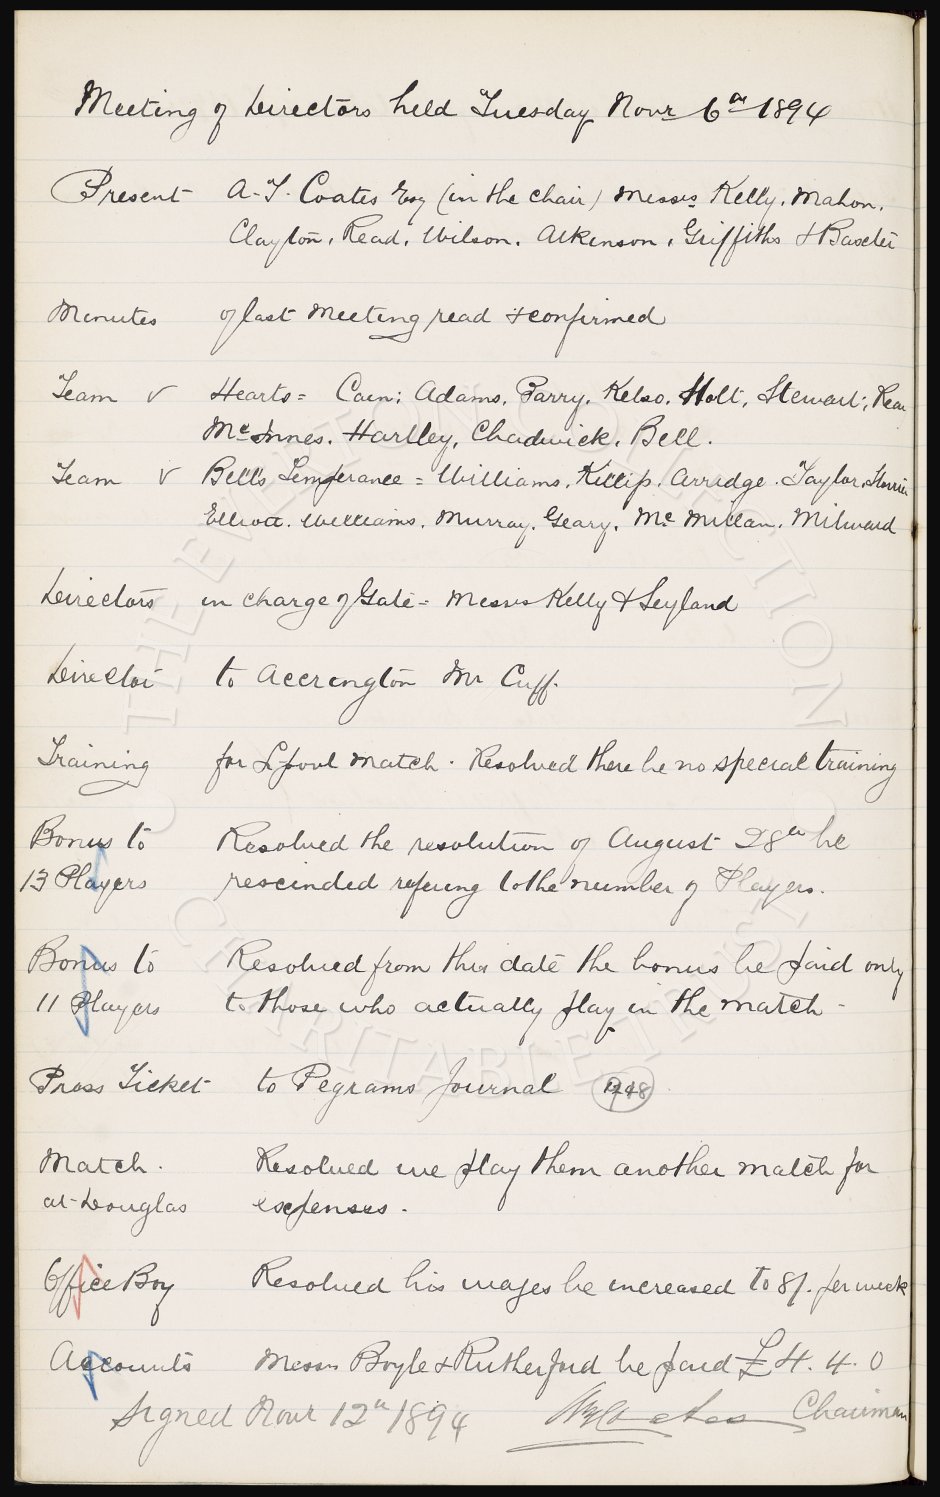 Meeting of Directors held Tuesday Novr 6th 1894
Present A.T. Coates Esq (in the chair) Messrs Kelly, Mahon,
Clayton, Read, Wilson, Atkinson, Griffiths & Baxter
Minutes of last meeting read & confirmed
Team v Hearts = Cain; Adams, Parry, Kelso, Holt, Stewart;
McInnes, Hartley, Chadwick, Bell.
Team v Bell's Temperance = Williams, Killip, Arridge, Taylor, Storrier
Elliott, Williams, Murray, Geary, McMillan, Milward
Directors in charge of Gate = Messrs Kelly & Leyland
Director to Accrington Mr Cuff.
Training for L'pool match. Resolved there be no special training
Bonus to Resolved the resolution of August 28th be
13 Players rescinded refering to the number of Players.
Bonus to Resolved from this date the bonus be paid only
11 Players to those who actually play in the match -
Press Ticket to Pegrams Journal
Match. Resolved we play them another match for
at Douglas expenses.
Office Boy Resolved his wages be increased to 8/. per week
Accounts Messrs Boyle & Rutherford be paid £4. 4. 0
Signed Novr 12th 1894 Chairman
THE EVERTON COLLECTION CHARITABLE TRUST